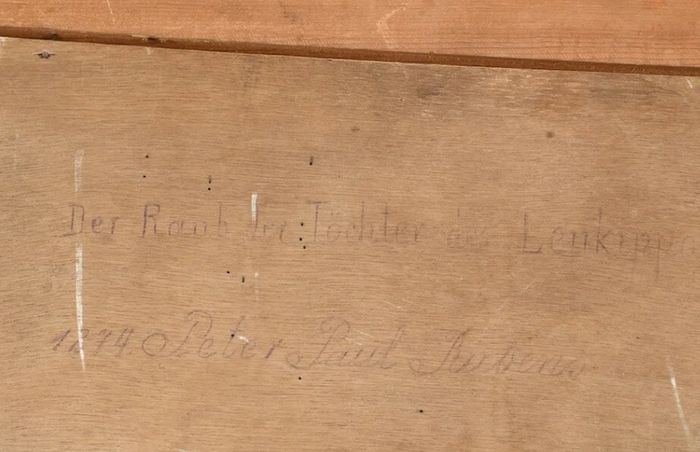 Der Raub der Töchter des Leukippo
1274. Peter Paul Rubens